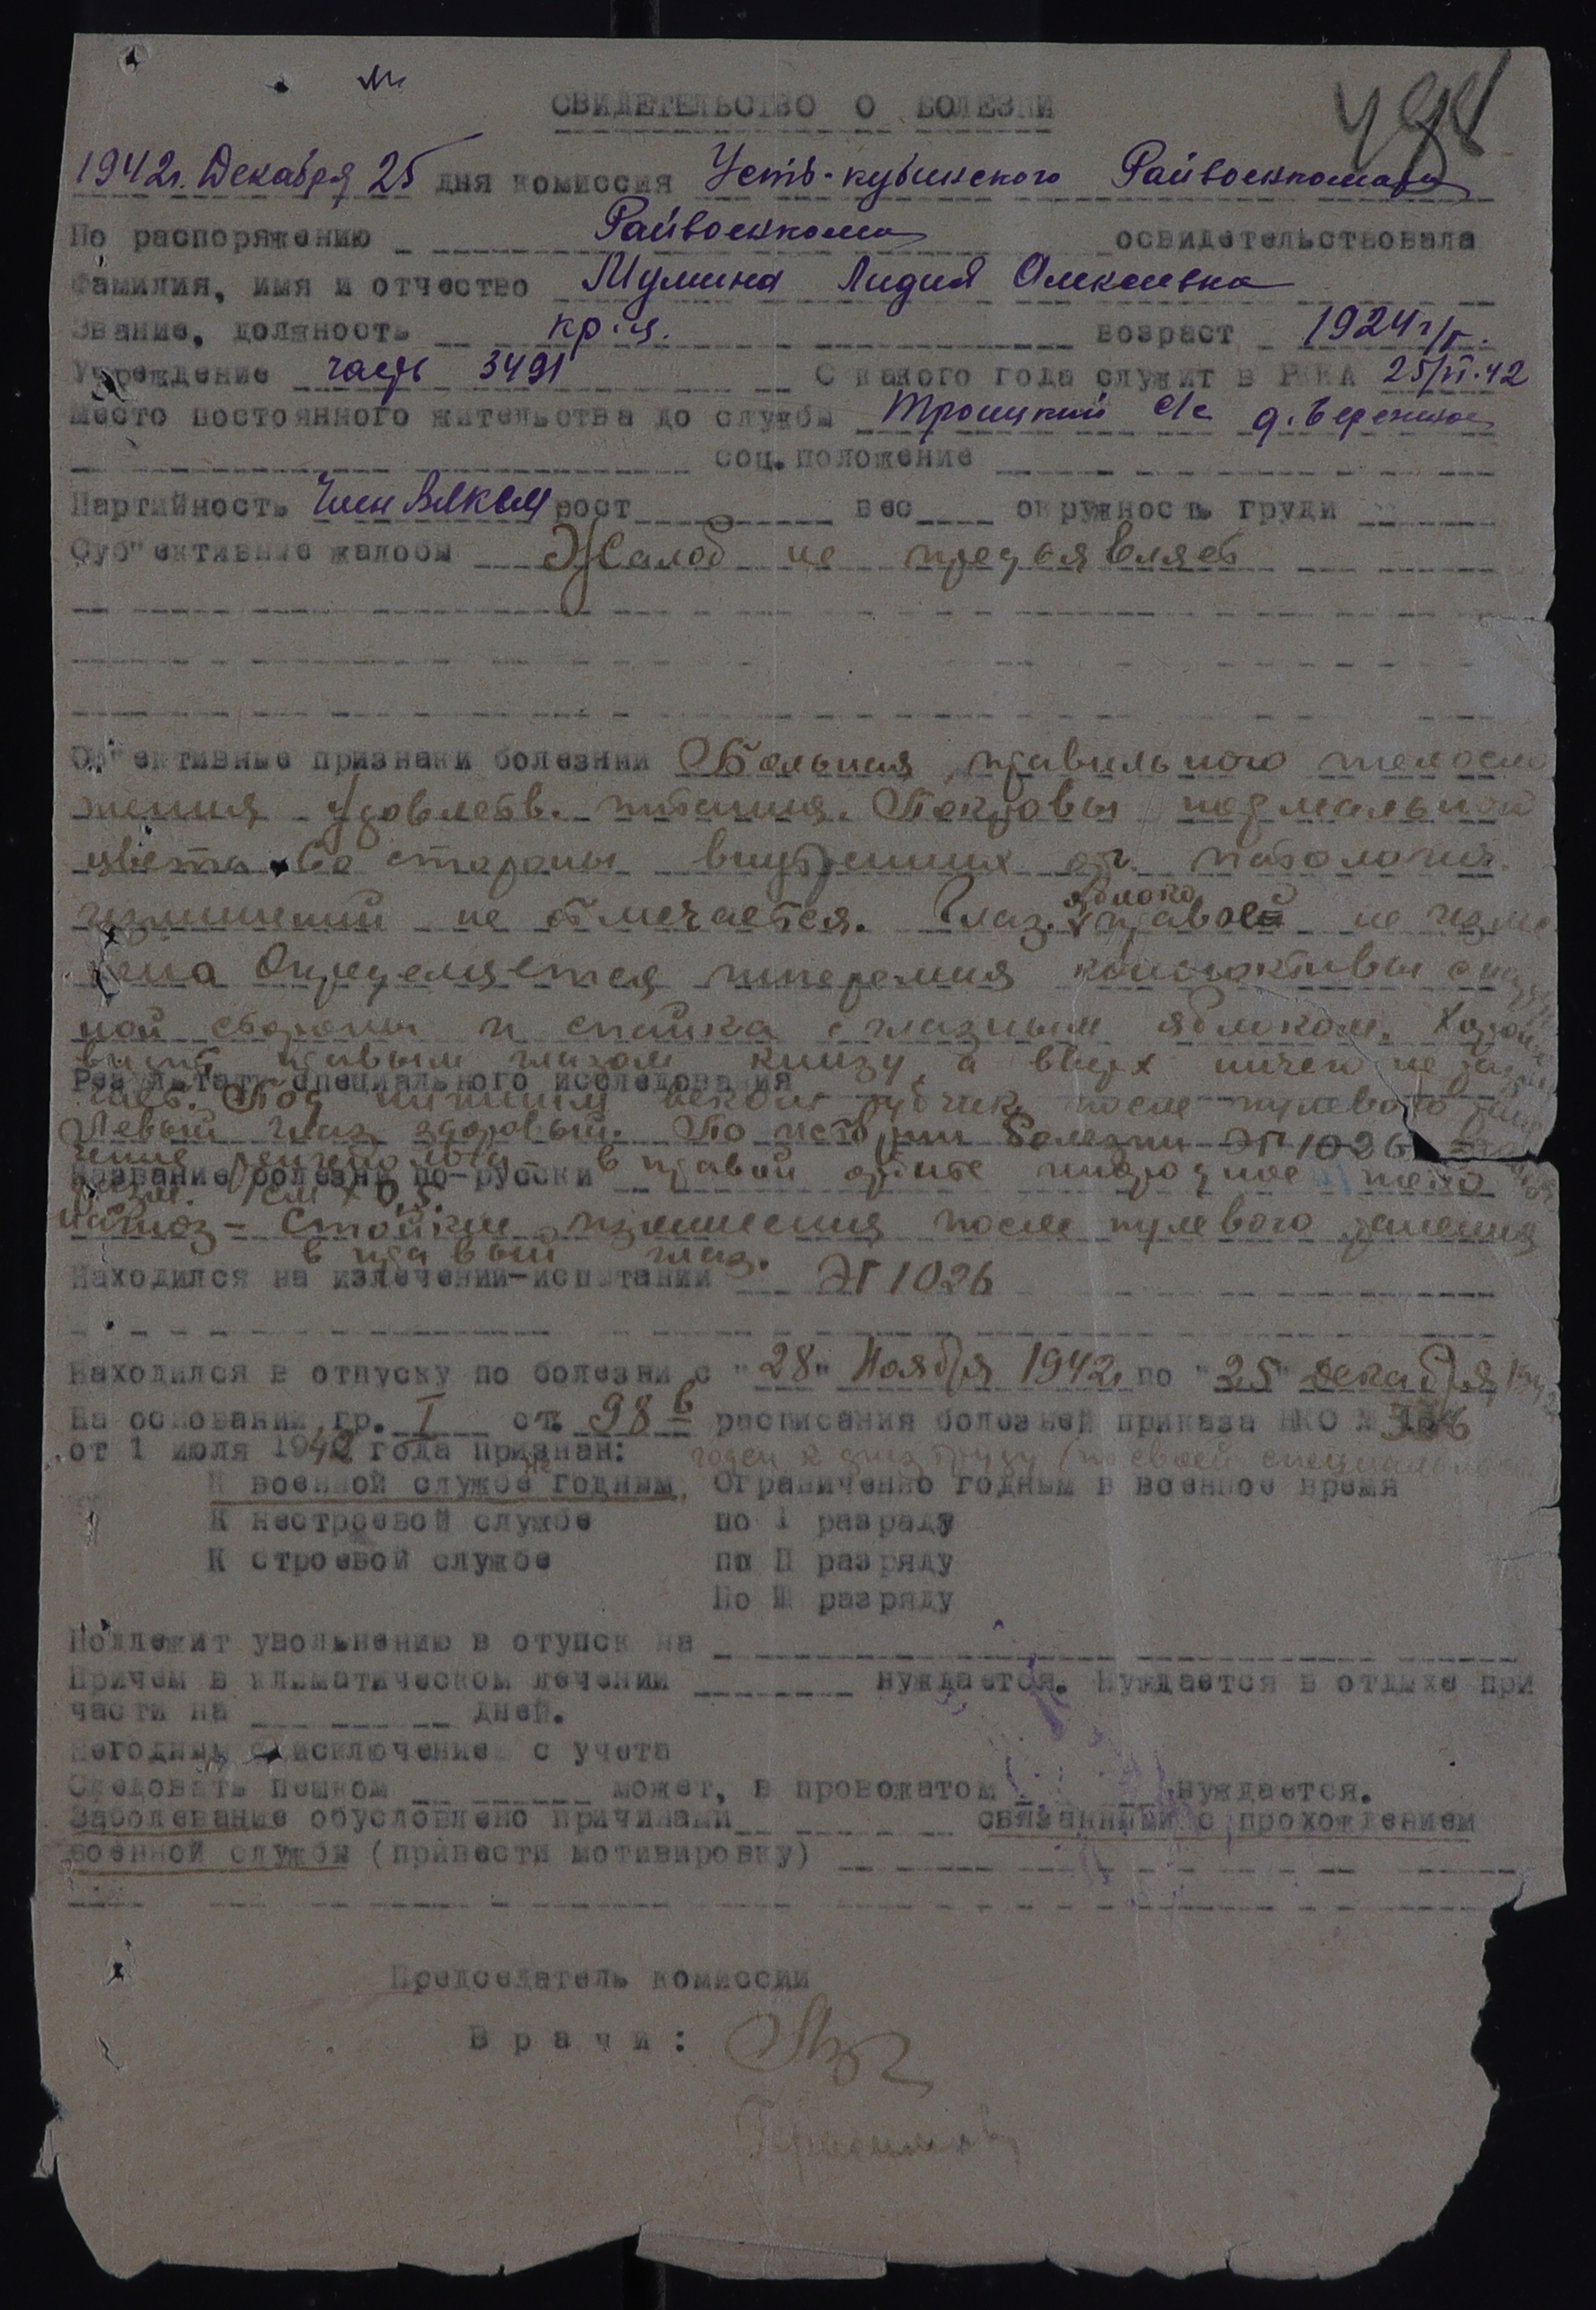 СВИДЕТЕЛЬСТВО О БОЛЕЗНИ
1942г. Декабря 25 дня комиссия Усть-кубинского Райвоенкомата
По распоряжению Райвоенкома освидетельствовала
Фамилия, имя и отчество Мумина Лидия Алексеевна
Звание, должность кр-ц. возраст 1924 г/р.
Учреждение часть 3491 С какого года служит в РККА 25/VI.42
Место постоянного жительства до службы Троицкий с/с д. Бережное
соц. положение
Партийность Член ВЛКСМ рост вес окружность груди
Суб"ективные жалобы Жалоб не предъявляет
Об"ективные признаки болезнии Больная правильного телосло
жения удовлетв. питания. Покровы нормальной
цвета. Со стороны внутренних ор. патологич.
изменений не отмечается. Глаз. яблоко правое не изме
нено Определяется гиперемия коньюктивы с
ной стороны и спайка с глазным яблоком. Хорошо
видит правым глазом книзу, а вверх ничего не
Результаты специального исследования
чает. Под нижним веком рубчик после пулевого
Левый глаз здоровый. По истории болезни ЭГ 1026
Название болезни по-русски в правой орбите инородное тело
разм. 1см х 0,5.
Стойкие изменения после пулевого ранения
в правый глаз.
Находился на излечении-испытании ЭГ 1026
Находился в отпуску по болезни с "28" Ноября 1942г по "25" декабря 1942
На основании гр. I ст. 98 в расписания болезней приказа НКО №
от 1 июля 1942 года признан: годен к физ труду (по своей специальности
К военной службе не годным, Ограниченно годным в военное время
К нестроевой службе по I разряду
К строевой службе по II разряду
По III разряду
Подлежит увольнению в отупск на
Причем в климатическом лечении нуждается. Нуждается в отдыхе при
части на дней.
Негодным с исключением с учета
Следовать пешком может, в провожатом нуждается.
Заболевание обусловлено причинами связанными с прохождением
военной службы (привести мотивировку)
Председатель комиссии
Врачи: